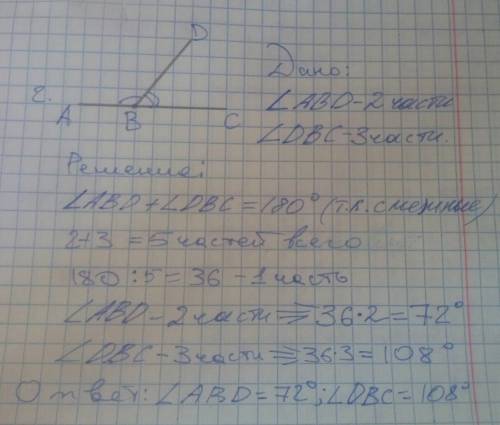 D
Дано:
2.
A B C
∠ABD-2 части
∠DBC-3 части.
Решение:
∠ABD+∠DBC=180° (т.к. смежные)
2+3=5 частей всего
180:5=36 -1 часть
∠ABD-2 части => 36·2=72°
∠DBC-3 части => 36·3=108°
Ответ: ∠ABD=72°; ∠DBC=108°